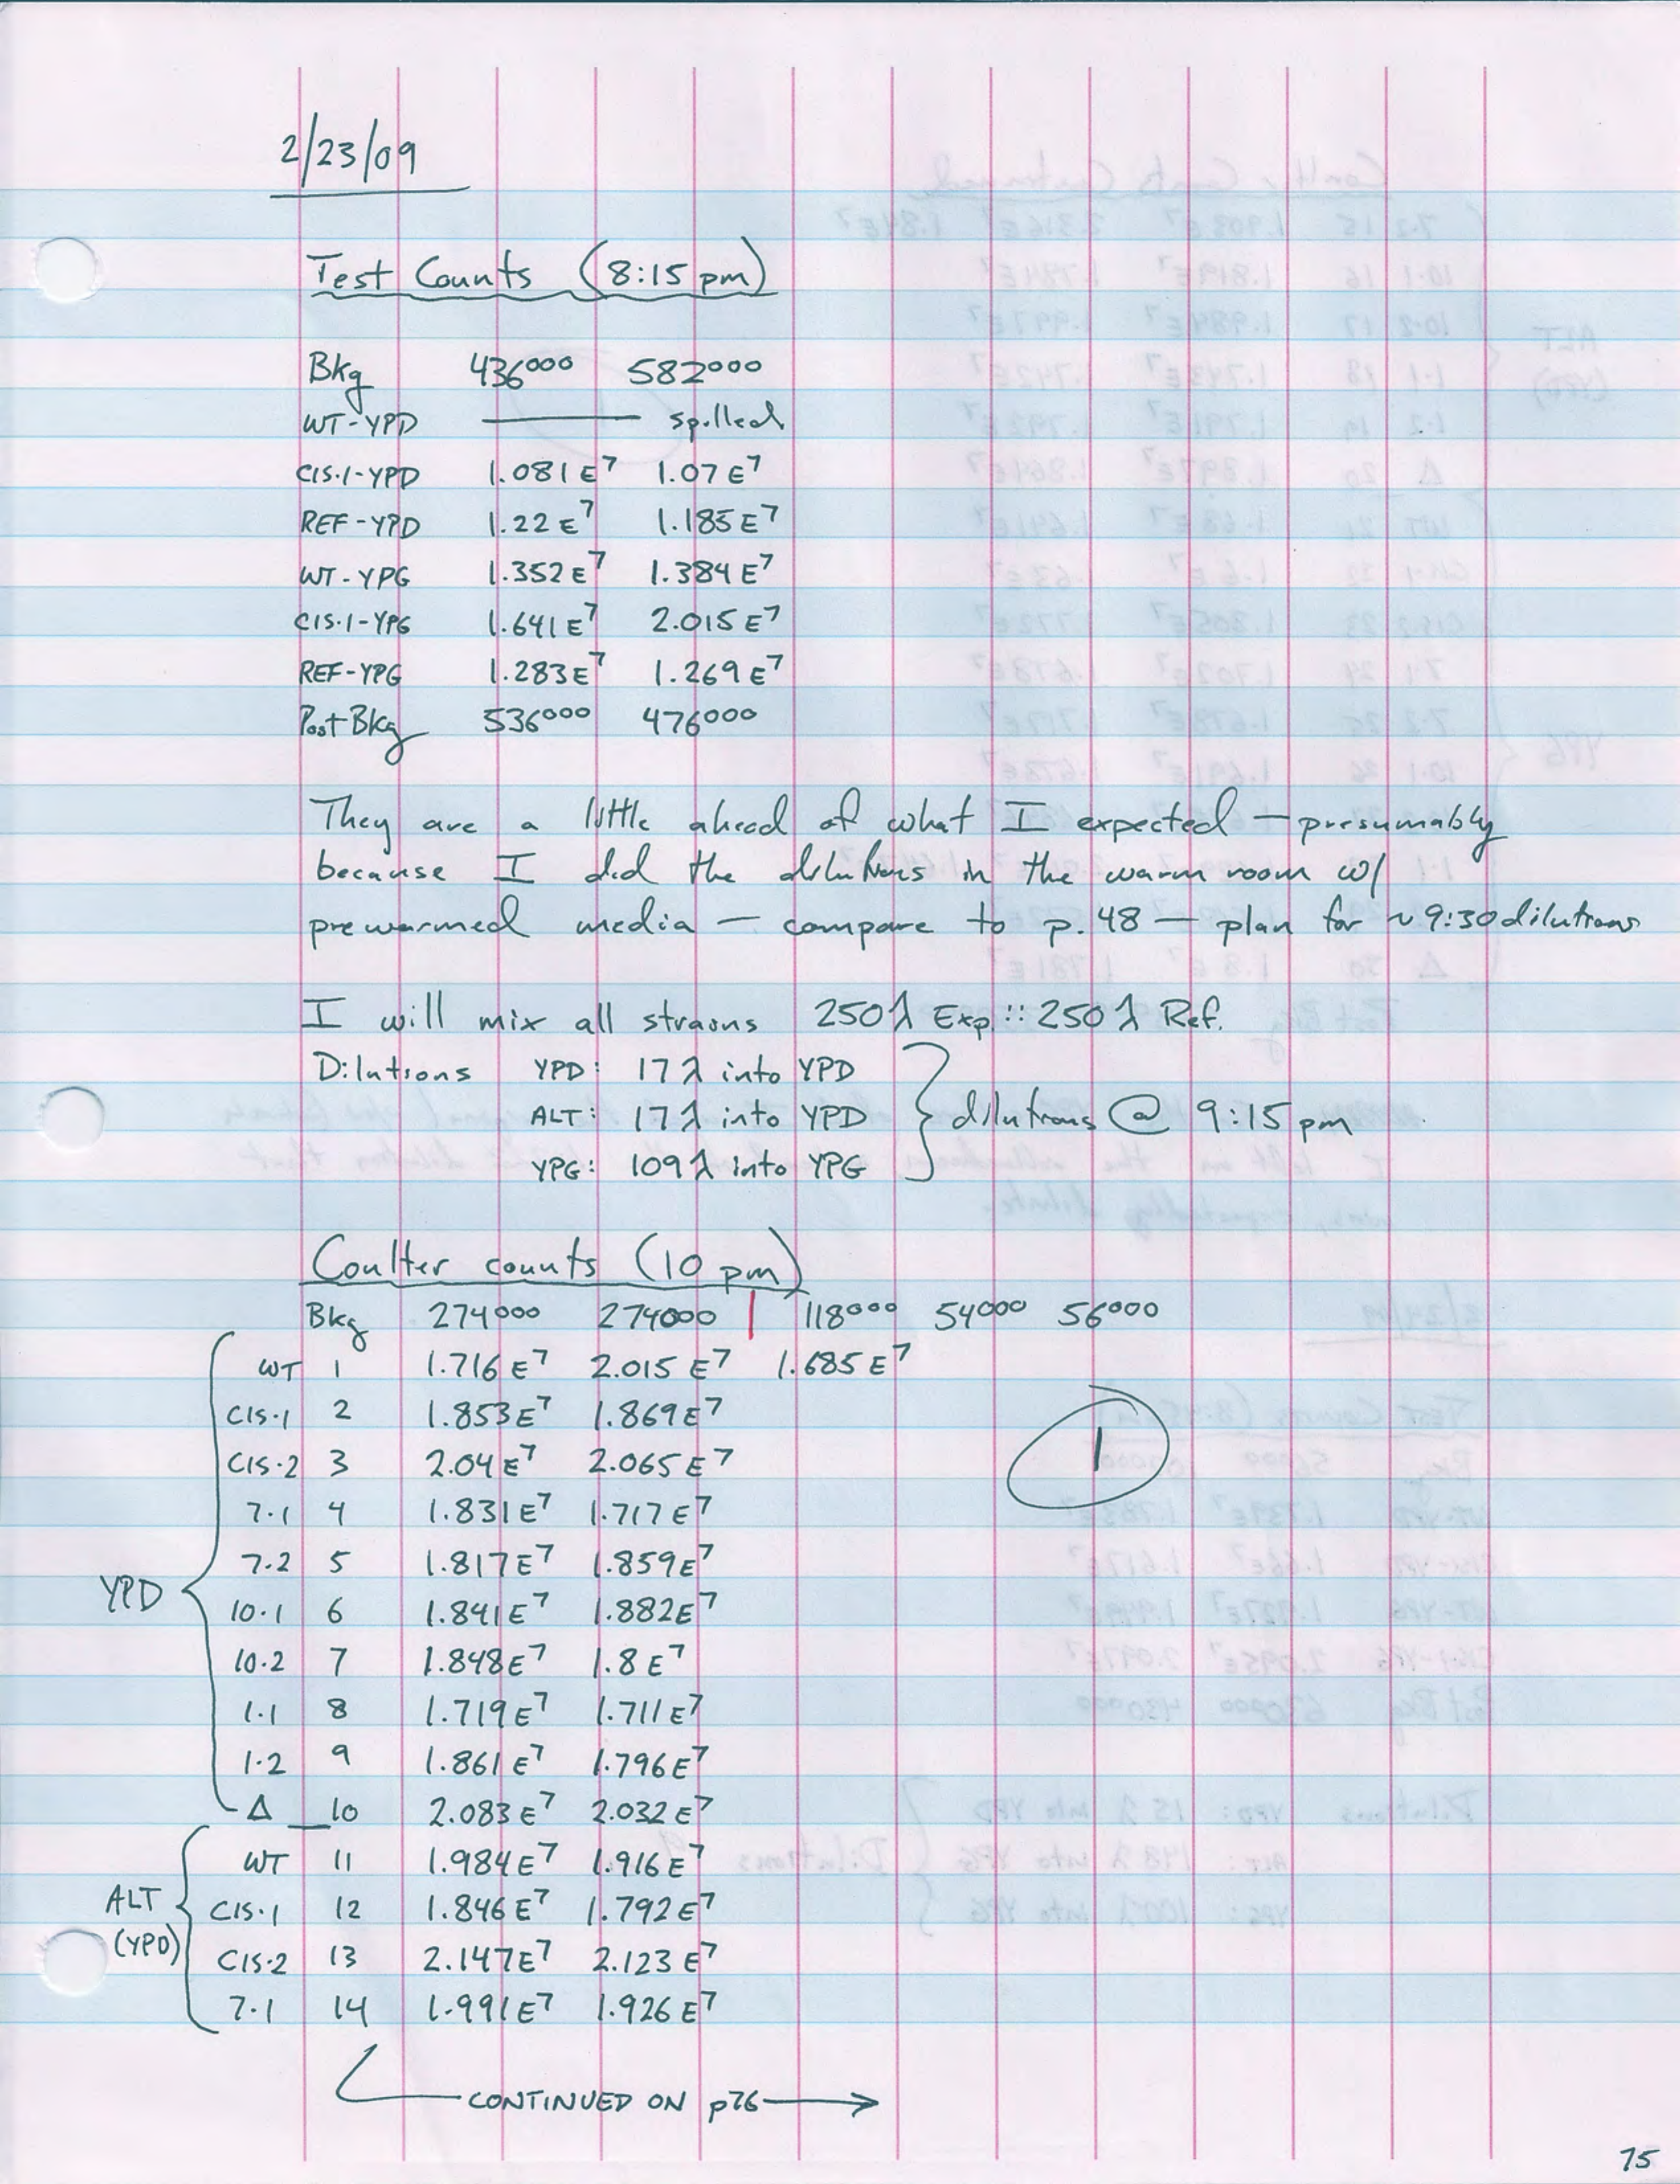 2/23/09
Test Counts (8:15 pm)
Bkg 436000 582000
WT-YPD —— spilled
CIS·1-YPD 1.081E7 1.07E7
REF-YPD 1.22E7 1.185E7
WT-YPG 1.352E7 1.384E7
CIS·1-YPG 1.641E7 2.015E7
REF-YPG 1.283E7 1.269E7
Post Bkg 536000 476000
They are a little ahead of what I expected — presumably
because I did the dilutions in the warm room w/
prewarmed media — compare to p.48 — plan for ~9:30 dilutions
I will mix all strains 250λ Exp :: 250λ Ref.
Dilutions YPD: 17λ into YPD
ALT: 17λ into YPD } dilutions @ 9:15 pm
YPG: 109λ into YPG
Coulter counts (10 pm)
Bkg 274000 274000 | 118000 54000 56000
WT 1 1.716E7 2.015E7 1.685E7
CIS·1 2 1.853E7 1.869E7
CIS·2 3 2.04E7 2.065E7
1
7·1 4 1.831E7 1.717E7
7·2 5 1.817E7 1.859E7
YPD
10·1 6 1.841E7 1.882E7
10·2 7 1.848E7 1.8E7
1·1 8 1.719E7 1.711E7
1·2 9 1.861E7 1.796E7
Δ 10 2.083E7 2.032E7
WT 11 1.984E7 1.916E7
ALT
CIS·1 12 1.846E7 1.792E7
(YPD)
CIS·2 13 2.147E7 2.123E7
7·1 14 1.991E7 1.926E7
CONTINUED ON p76 →
75